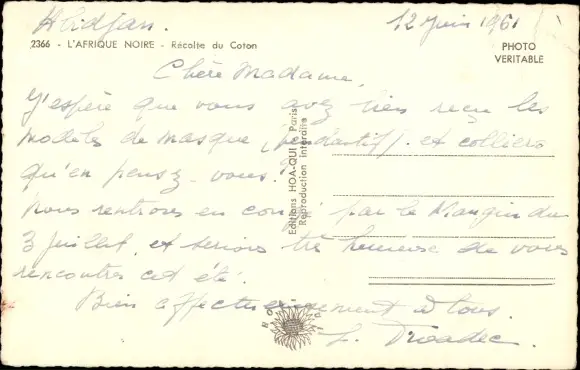 Abidjan. 12 Juin 1961
2366 - L'AFRIQUE NOIRE - Récolte du Coton
PHOTO
VERITABLE
Chère Madame,
J'espère que vous avez bien reçu les
modèles de masque, pendentif, et colliers
qu'en pensez-vous?
Nous rentrons en congé par le Mangin du
3 juillet, et serions très heureuse de vous
rencontrer cet été.
Bien affectueusement à tous.
Editions HOA-QUI - Paris
Reproduction interdite